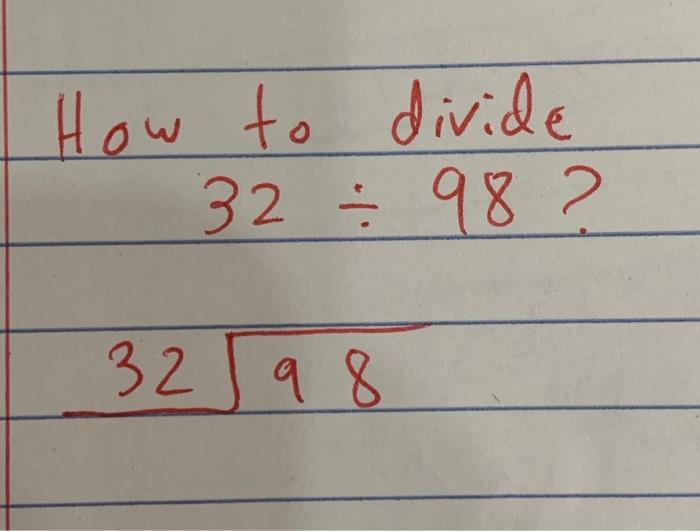 How to divide
32 ÷ 98 ?
32 98